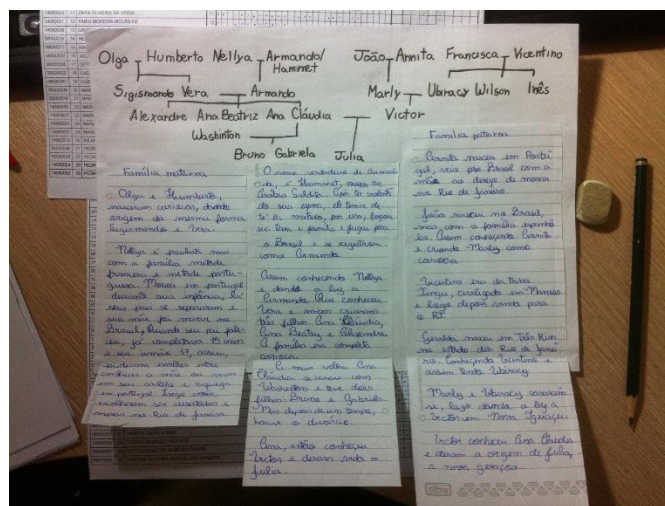 Olga Humberto Nellya Armando/ João Annita Francisca Vicentino
Hammet
Sigismondo Vera Armando Marly Ubiracy Wilson Inês
Alexandre Ana Beatriz Ana Cláudia Victor
Washinton
Bruno Gabriela Julia
Família materna
Olga e Humberto,
nasceram cariocas, dando
origem da mesma forma
Sigismondo e Vera.
Nellya é paulista mas
com a família metade
francesa e metade portu-
guesa. Morou em portugal
durante sua infância,
seus pais se separaram e
sua mãe foi morar no
Brasil, quando seu pai fale-
ceu, já completava 15 anos
e seu 17, assim,
puderam escolher entre
conhecer a mãe ou
em portugal. Logo
e
morar no Rio de Janeiro.
O nome verdadeiro de Armando
é
Arábia Saudita.
do seu
te ser por isso, largou
seu e família e fugiu para
o Brasil e se registrou
como Armando.
Assim conhecendo Nellya
e dando a luz a
Armando que conheceu
Vera e ambos criaram
três filhos: Ana Cláudia,
Ana Beatriz e Alexandre.
A família era completa
carioca.
A mais velha Ana
Cláudia se casou com
Washinton e teve dois
filhos: Bruno e Gabriela
Mas depois de um tempo,
houve o divórcio.
Ana, então conheceu
Victor e deram vida a
Julia.
Família paterna
Annita nasceu em Portu-
gal, veio pro Brasil com a
mãe no desejo de morar
no Rio de Janeiro
João nasceu no Brasil,
mas com a família espanho-
la. Assim conhecendo Annita
e criando Marly como
carioca.
Vicentino era da
Xingu, civilizado em Manaus
e logo depois vindo para
o RJ.
nasceu em
no estado do Rio de Janei-
ro. Conhecendo Vicentino e
assim tendo Ubiracy.
Marly e Ubiracy
se, logo dando a luz a
Victor em Nova Iguaçu
Victor conheceu Ana Cláudia
e deram a origem de Julia,
a nova geração